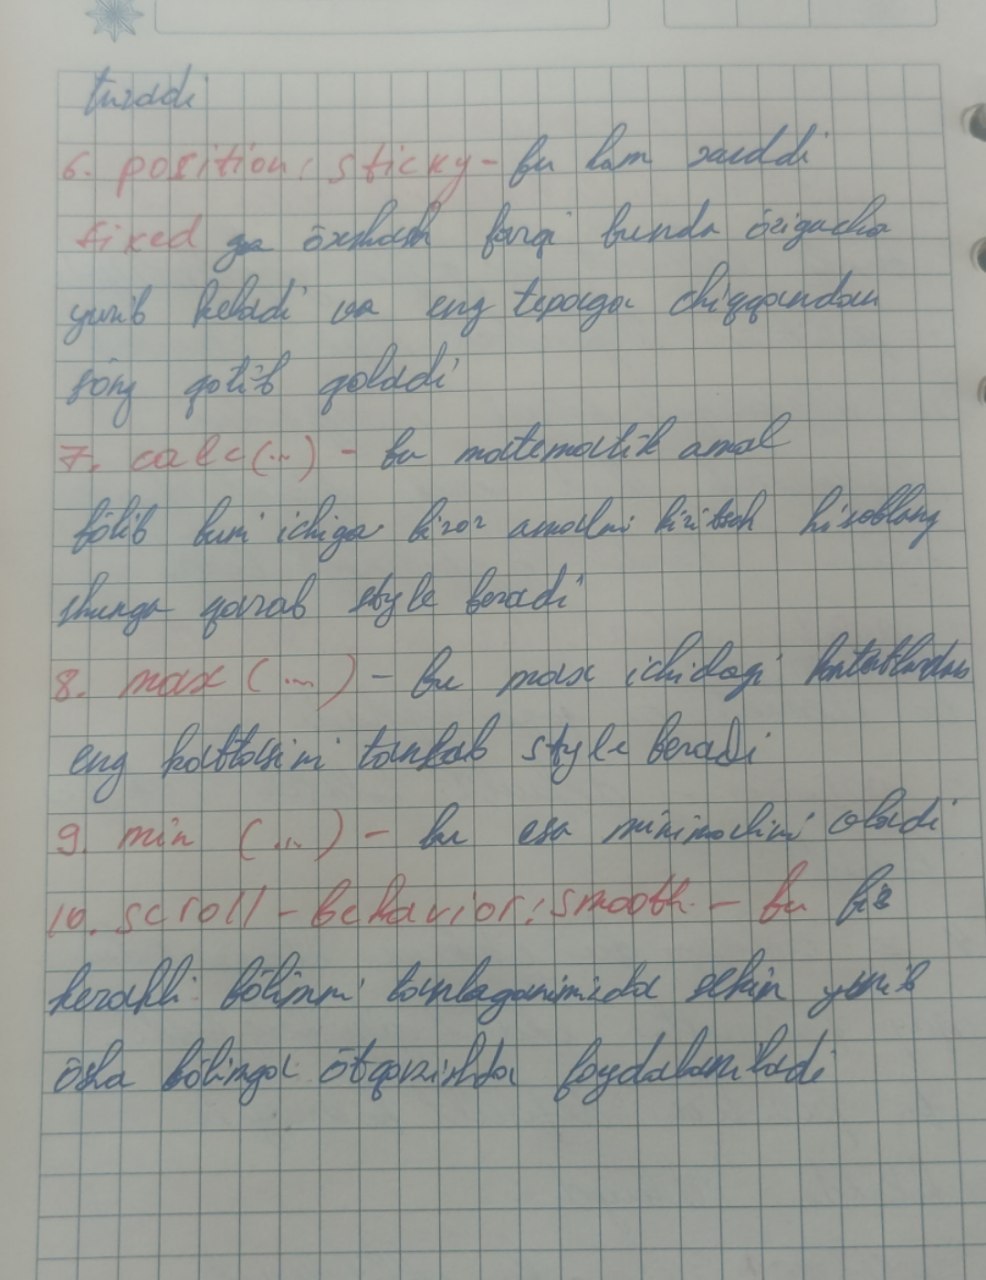 turadi
6. position: sticky - bu ham xuddi
fixed ga öxshash farqi bunda özigacha
yurib keladi va eng tepaga chiqqandan
söng qotib qoladi
7. calc(...) - bu matematik amal
bölib buni ichiga biror amalni kiritsak hisoblang
shunga qarab style beradi
8. max (...) - bu max ichidagi
eng kattasini tanlab style beradi
9. min (...) - bu esa minimalini oladi
10. scroll-behavior: smooth - bu biz
kerakli bölimni tanlaganimizda sekin yurib
ösha bölimga ötqazishda foydalaniladi